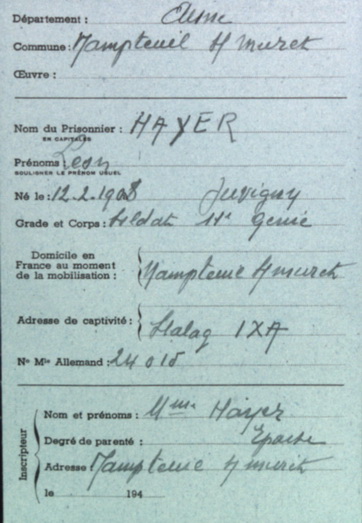 Département : Aisne
Commune : Nampteuil s/ Muret
Œuvre :
Nom du Prisonnier : HAYER
EN CAPITALES
Prénoms : Léon
SOULIGNER LE PRÉNOM USUEL
Né le : 12.2.1908 Juvigny
Grade et Corps : Soldat 11e Génie
Domicile en
France au moment
de la mobilisation : Nampteuil s/muret
Adresse de captivité : Stalag IXA
No Mle Allemand : 24 015
Inscripteur
Nom et prénoms : Mme Hayer
Degré de parenté : Epouse
Adresse Nampteuil s/ muret
le 194